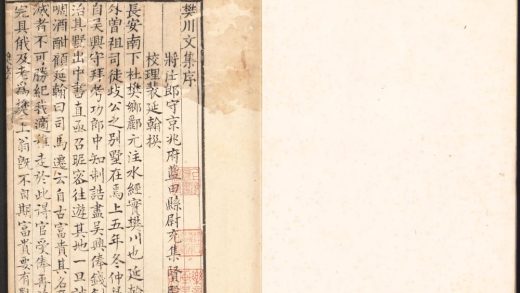 樊川文集序
將仕郎守京兆府藍田縣尉充集賢
校理裴延翰撰
長安南下杜樊鄉酈元注水經實樊川也延翰
外曾祖司徒歧公之別墅在焉上五年冬仲
自吴興守拜考功郎中知制誥盡吴興俸錢
治其墅出中書直亟召昵密往遊其地一旦談
啁酒酣顧延翰曰司馬遷云自古富貴其名
滅者不可勝紀我適稚走於此得官受俸再
完具俄及老爲樊上翁既不自期富貴要有